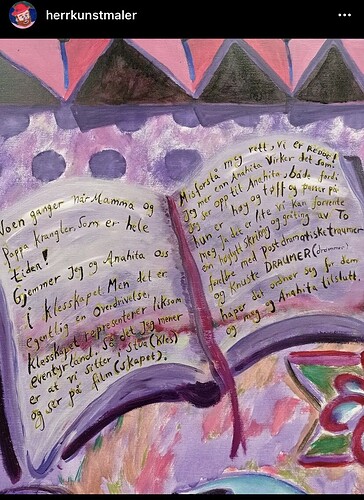 herrkunstmaler
Noen ganger når Mamma og
Poppa Krangler. Som er hele
tiden!
Gjemmer Jeg og Anahita Oss
i Klesskapet. Men det er
egentlig en Overdrivelse.
Klesskapet representerer liksom
eventyrland. Så det Jeg mener
er at vi sitter i stua (Kles)
og ser på film (skapet).
Misforstå meg rett, vi er REDDE!
Jeg mener Anahita Virker det som.
Jeg ser opp til Anahita, både fordi
hun er høy og tøff og passer på
meg. Ja det er lite vi Kan forvente
en høylytt skriking og gråting av To
foreldre med Post dramatiske traumer
og Knuste DRAUMER (drømmer).
håper det ordner seg for dem
og meg og Anahita tilslutt.